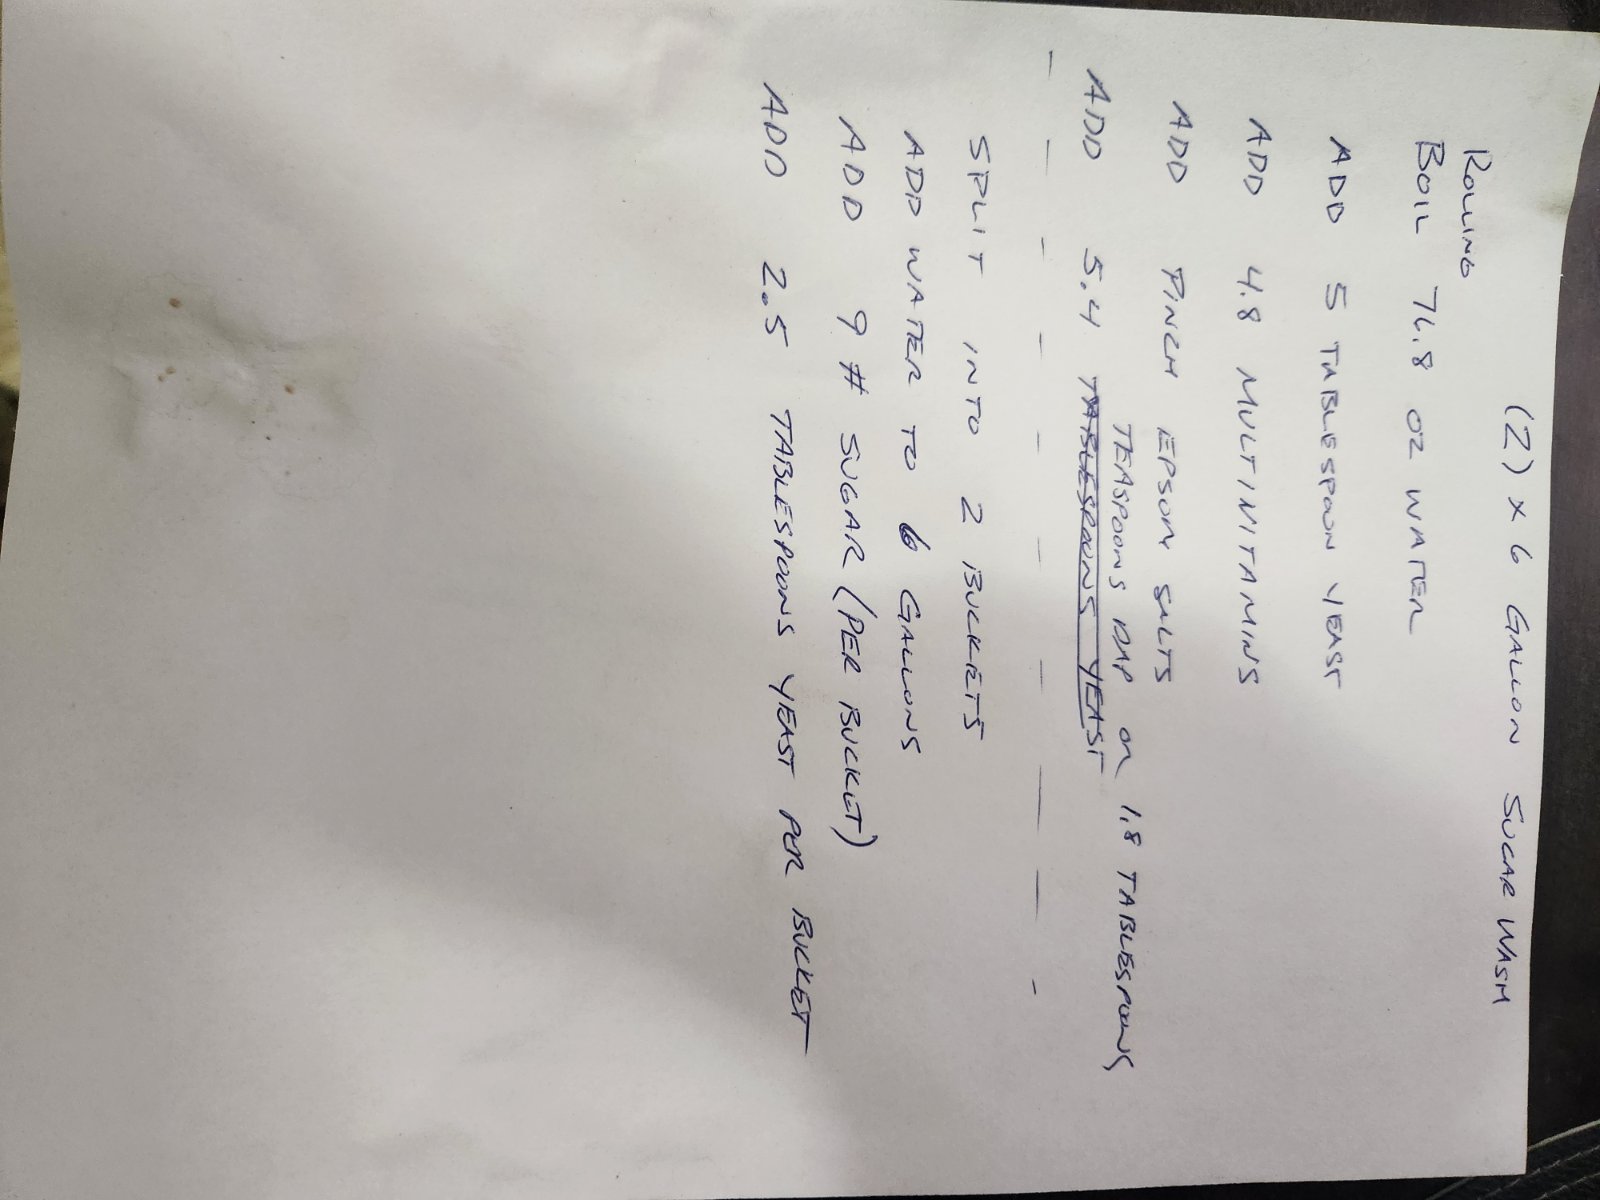 (2) x 6 GALLON SUGAR WASH
ROLLING
BOIL 76.8 OZ WATER
ADD 5 TABLESPOON YEAST
ADD 4.8 MULTIVITAMINS
ADD PINCH EPSOM SALTS
TEASPOONS DAP OR 1.8 TABLESPOONS
ADD 5.4 TABLESPOONS YEAST
SPLIT INTO 2 BUCKETS
ADD WATER TO 6 GALLONS
ADD 9 # SUGAR (PER BUCKET)
ADD 2.5 TABLESPOONS YEAST PER BUCKET